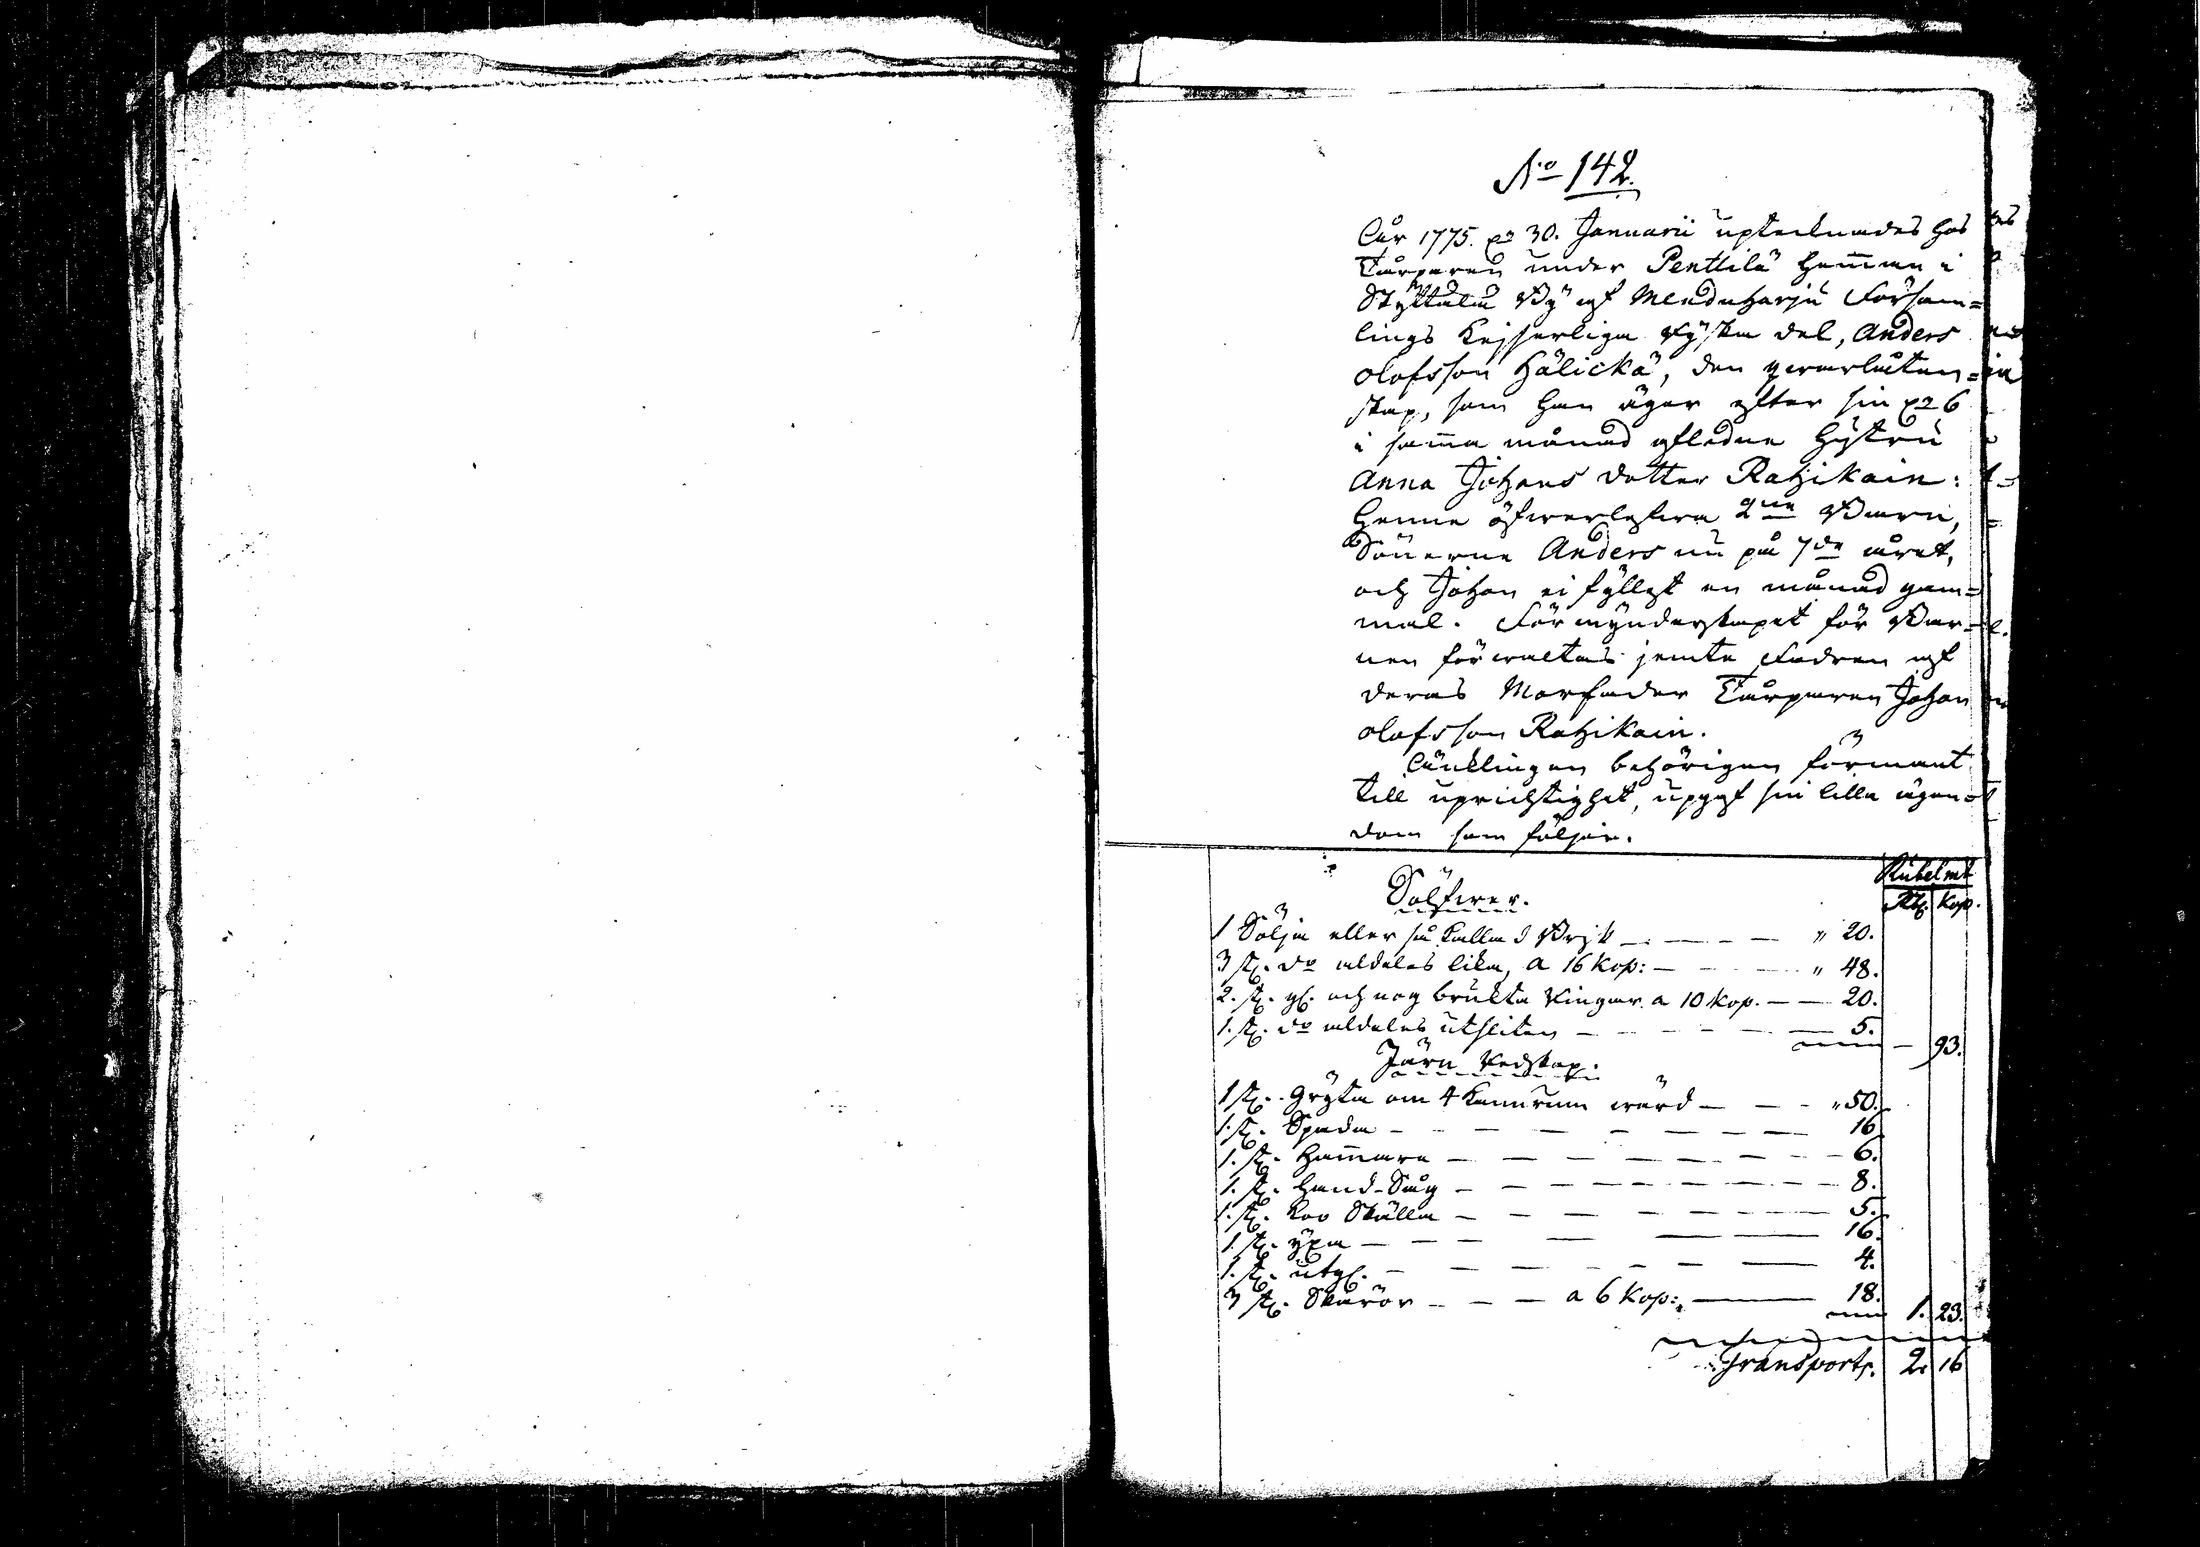 No 142.
Åår 1775. d. 30. Januarii uptecknades hos
Torparen under Penttilä hemman i
Skyttälä By af Menduharju Försam=
lings Kejserliga Ryska del, Anders
Olofsson Hälickä, den qwarlåten=
skap, som han äger efter sin d. 6
i samma månad afledne Hustru
Anna Johans dotter Rahikain:
Henne öfwerlefwa 2ne Barn,
Sönerne Anders nu på 7de året,
och Johan ei fyllest en månad gam=
mal. Förmynderskapet för Bar=
nen förwaltas jemte Fadren af
deras Morfader Torparen Johan
Olofsson Rahikain.
Änklingen behörigen förmant
till uprichtighet, uppgaf sin lilla ägen=
dom som följer.
Rubel mt
Rb. Kop.
Sölfwer.
1 Sölja eller så kallad Brisk — — — " 20.
3 st. do aldeles lika, a 16 Kop: — — " 48.
2. st. gl. och nog brukta Ringar a 10 Kop. — — 20.
1. st. do aldeles utsliten — — — — 5. — 93.
Järn Redskap.
1 st. Gryta om 4 Kannrum wärd — — " 50.
1. st. Spada — — — — — 16
1. st. Hammare — — — — — 6.
1. st. Hand-Såg — — — — — 8.
1. st. Koo Skälla — — — — — 5.
1. st. yxa — — — — — 16.
1. st. utgl. — — — — — 4.
3 st. Skäror — — — a 6 Kop: — 18. 1. 23.
Transport. 2. 16